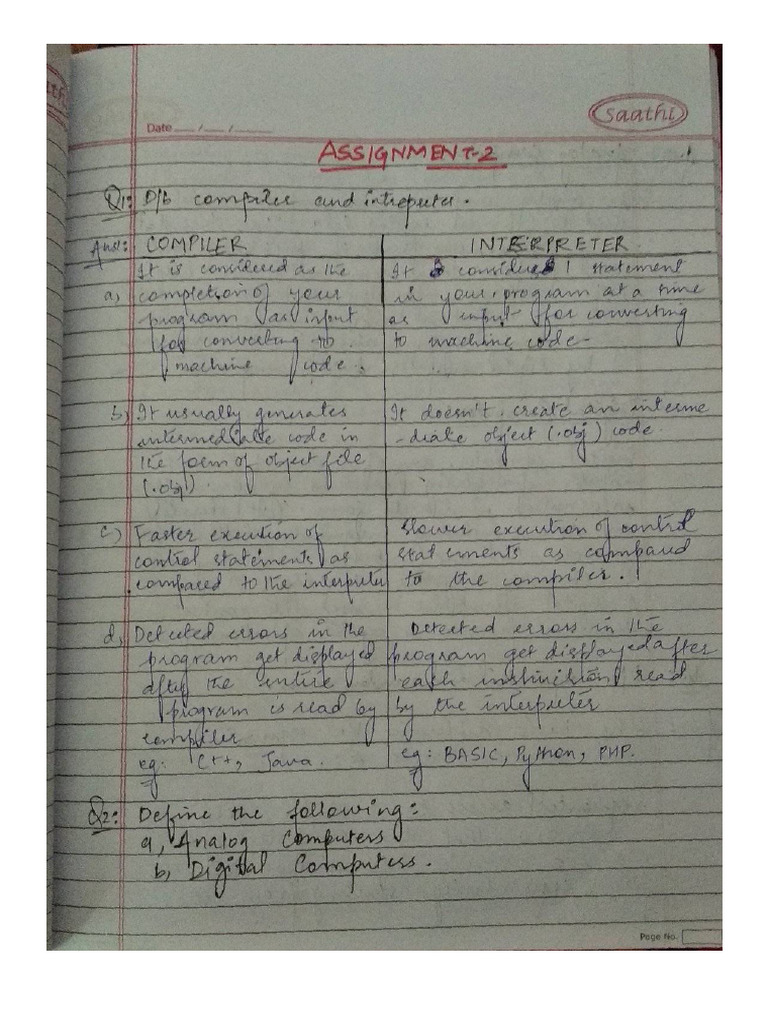 saathi
Date
ASSIGNMENT-2
Q1: D/b compiler and intrepreter.
Ans: COMPILER INTERPRETER
It is considered as the It considers 1 statement
a) completion of your in your program at a time
program as input as input for converting
for converting to to machine code-
machine code.
b) It usually generates It doesn't create an interme
intermediate code in -diate object (.obj) code.
the form of object file
(.obj)
c) Faster execution of Slower execution of control
control statements as statements as compared
compared to the interpreter to the compiler.
d, Detected errors in the Detected errors in the
program get displayed program get displayed after
after the entire each instruction read
program is read by by the interpreter
compiler
eg: C++, Java. eg: BASIC, Python, PHP.
Q2: Define the following:
a, Analog Computers
b, Digital Computers.
Page No.